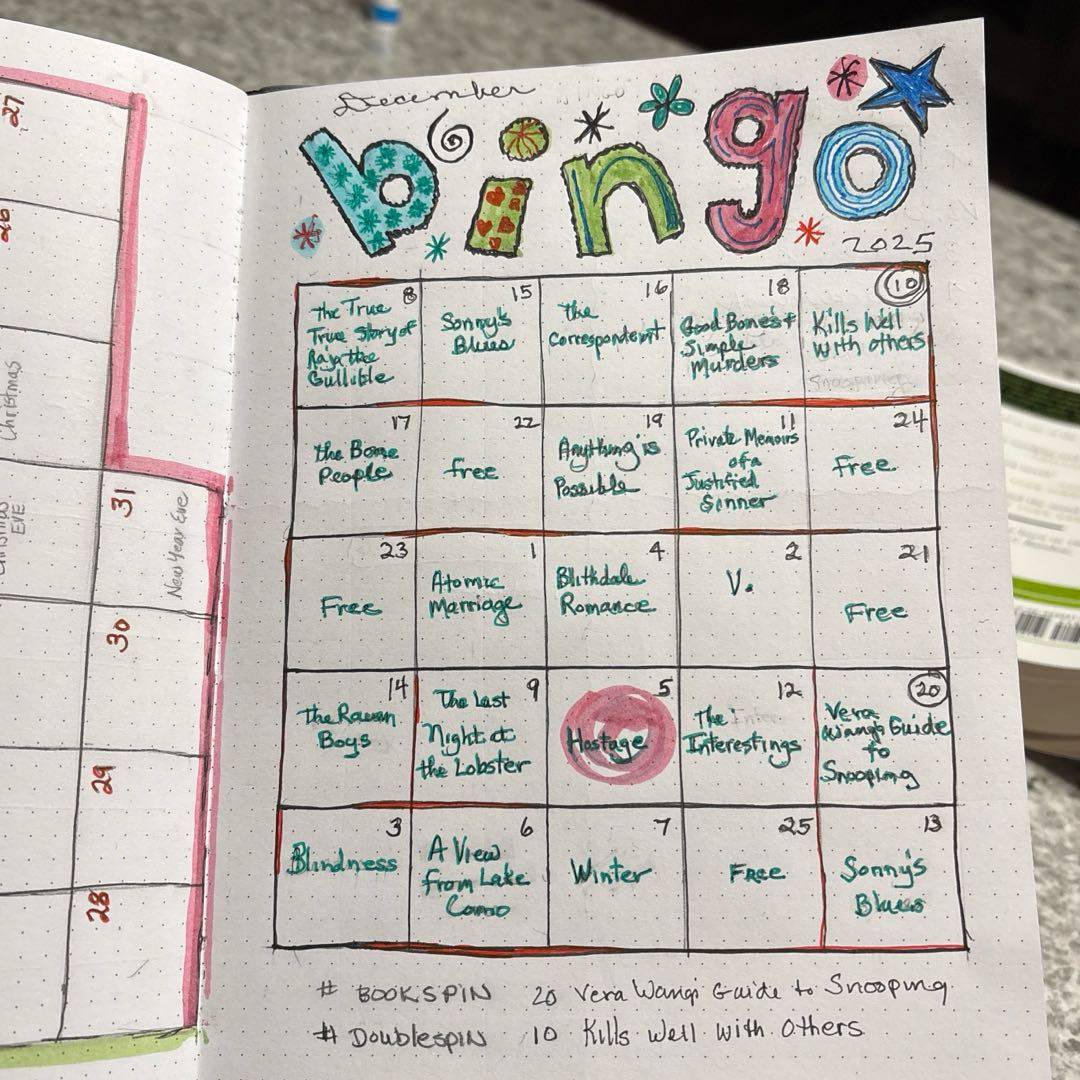 December
bingo
2025
8
the True
True Story of
Raja the
Gullible
15
Sonny's
Blues
16
the
Correspondent
18
Good Bones &
Simple
Murders
10
Kills Well
with others
17
the Bone
People
22
free
19
Anything is
Possible
11
Private Memoirs
of a
Justified
Sinner
24
Free
23
Free
1
Atomic
Marriage
4
Blithdale
Romance
2
V.
21
Free
14
the Raven
Boys
9
The Last
Night at
the Lobster
5
Hostage
12
The
Interestings
20
Vera
Wang's Guide
to
Snooping
3
Blindness
6
A View
from Lake
Como
7
Winter
25
Free
13
Sonny's
Blues
# BOOKSPIN 20 Vera Wang's Guide to Snooping
# DOUBLESPIN 10 Kills Well with Others
27
26
Christmas
Christmas
EVE
31
New Year Eve
30
29
28